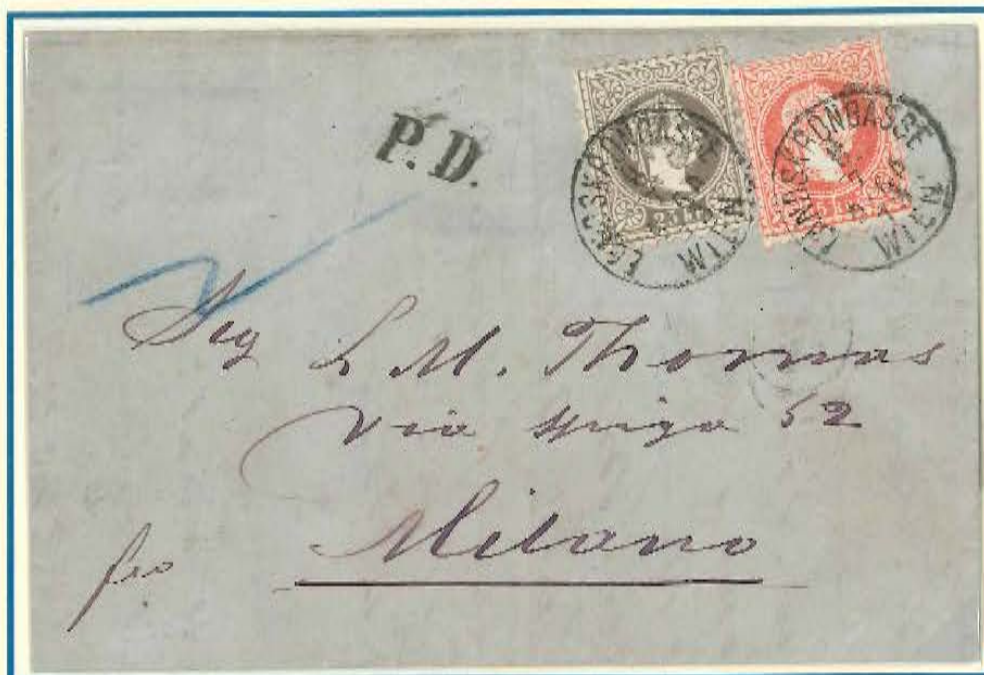 P. D.
LANDSKRONGASSE WIEN
LANDSKRONGASSE WIEN
Sig L M. Thomas
Via Spiga 52
fro Milano